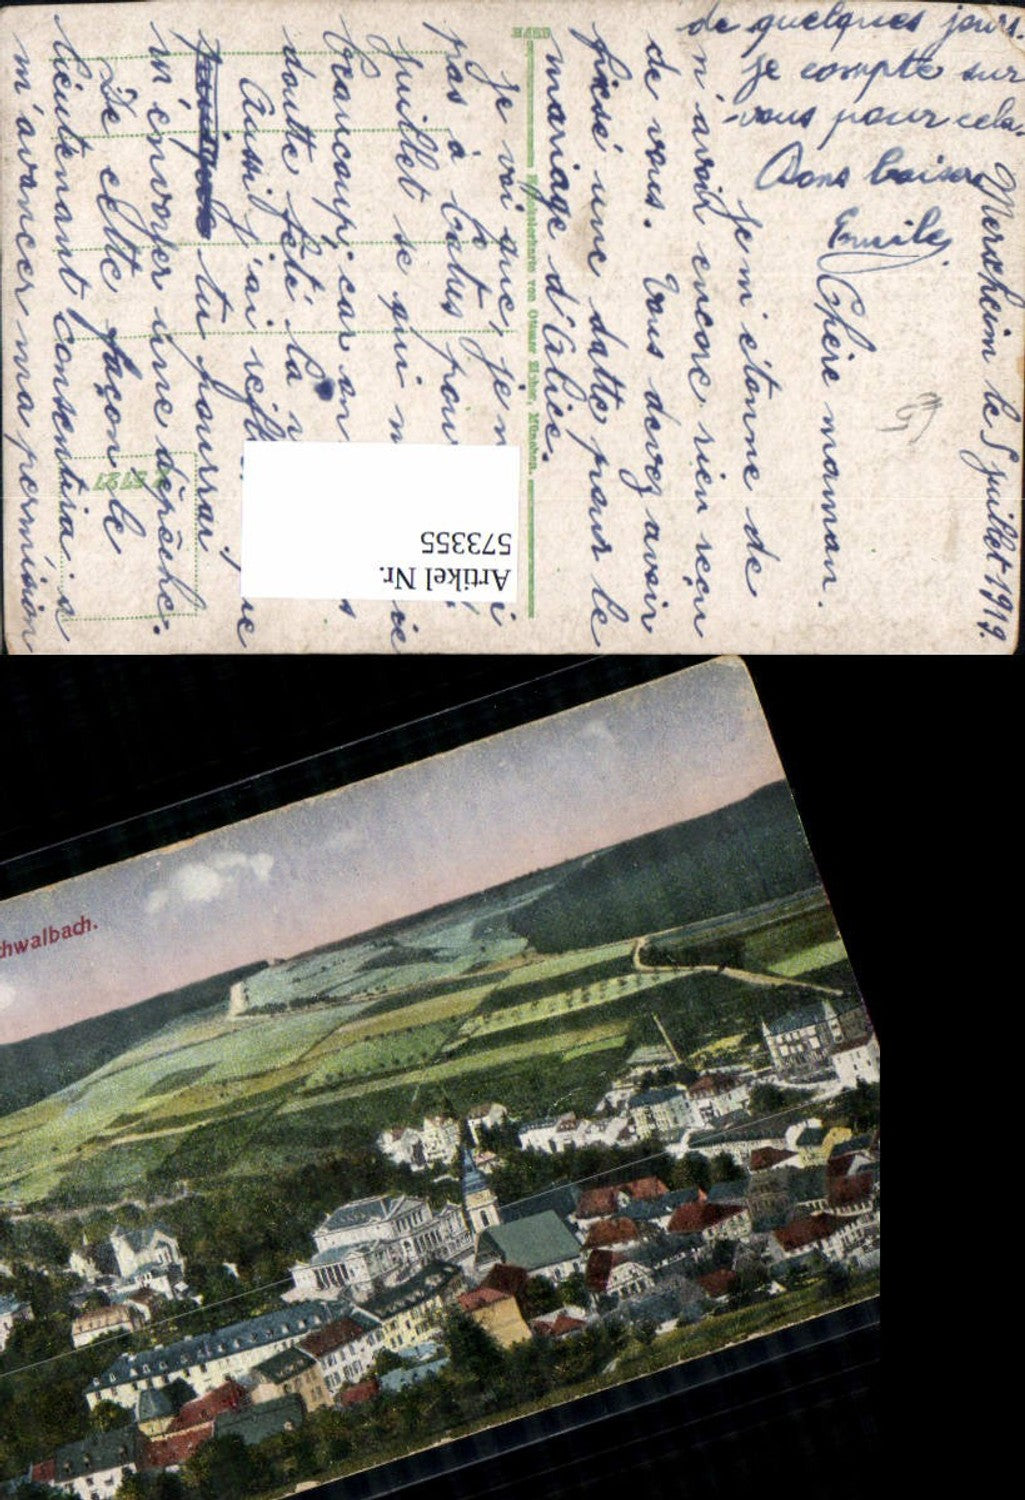 Merxheim le 5 juillet 1919.
Chère maman.
Je m'étonne de
n'avoir encore rien reçu
de vous. Vous devez avoir
fixé une datte pour le
mariage d'Alice.
Je voi que je n
pas à Catus pour
juillet se qui m
beaucoup car on
doute fêté la
Aussi j'ai réfl
tu pourrai
m'envoyer une dépêche.
De cette façon le
lieutenant consentira à
m'avancer ma permission
de quelques jours.
Je compte sur
vous pour cela.
Bons baisers
Emile
637E
von Ottmar Zieher, München.
2727
Artikel Nr.
573355
chwalbach.